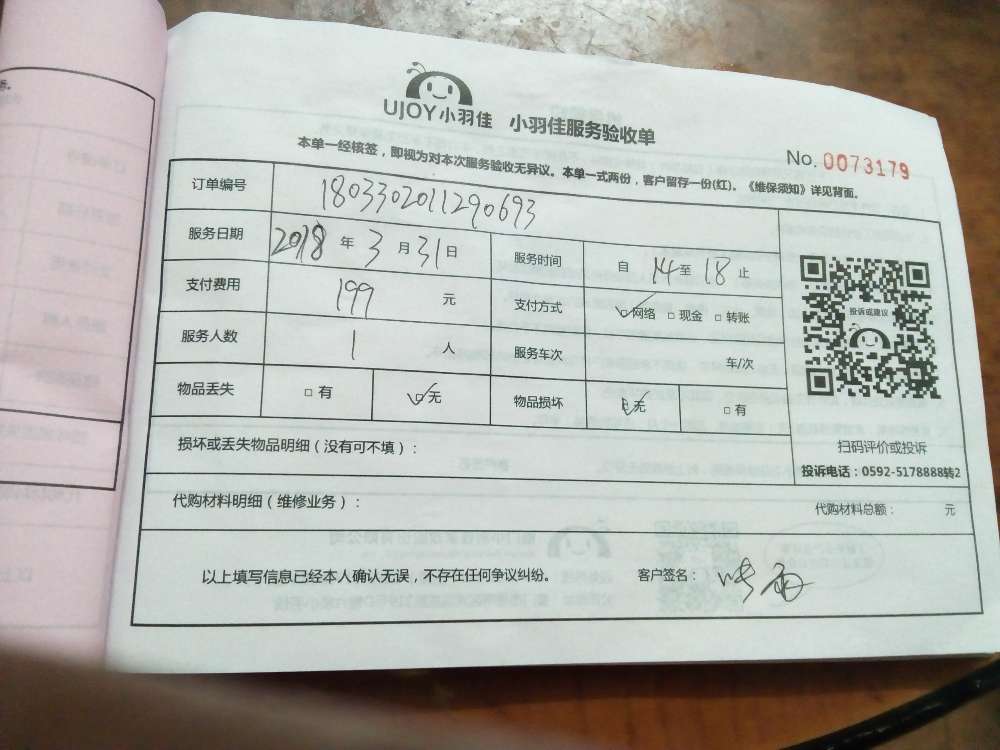 UJOY小羽佳 小羽佳服务验收单
No. 0073179
本单一经核签，即视为对本次服务验收无异议。本单一式两份，客户留存一份(红)。《维保须知》详见背面。
订单编号 1803302011290693
服务日期 2018 年 3 月 31 日 服务时间 自 14 至 18 止
支付费用 199 元 支付方式 ☑网络 □现金 □转账
服务人数 1 人 服务车次 车/次
物品丢失 □有 ☑无 物品损坏 ☑无 □有
投诉或建议
扫码评价或投诉
投诉电话：0592-5178888转2
损坏或丢失物品明细（没有可不填）：
代购材料明细（维修业务）： 代购材料总额： 元
以上填写信息已经本人确认无误，不存在任何争议纠纷。 客户签名：